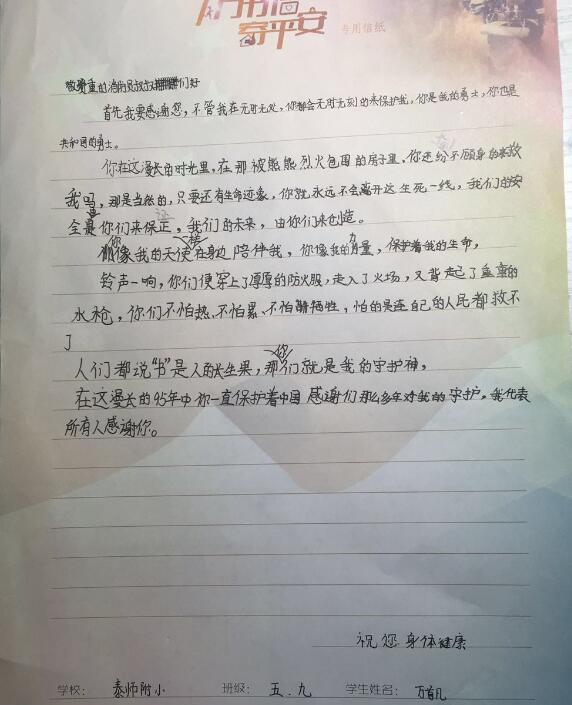 寄平安
专用信纸
敬爱重的消防员叔叔们好
首先我要感谢您，不管我在何时何处，你都会无时无刻的来保护我，你是我的勇士，你也是
共和国的勇士。
你在这漫长的时光里，在那被熊熊烈火包围的房子里，你还奋不顾身的来救
我吗，那是当然的，只要还有生命迹象，你就永远不会离开这生死一线，我们的安
全是你们来保证，我们的未来，由你们来创造。
你像我的天使一样在身边陪伴我，你像我的力量，保护着我的生命，
铃声一响，你们便穿上了厚厚的防火服，走入了火场，又背起了重重的
水枪，你们不怕热、不怕累、不怕牺牲，怕的是连自己的人民都救不
了
人们都说"书"是人的长生果，那你们就是我的守护神，
在这漫长的95年中你一直保护着中国 感谢们那么多年对我的守护。我代表
所有人感谢你。
祝您 身体健康
学校： 泰师附小 班级： 五.九 学生姓名： 万首凡